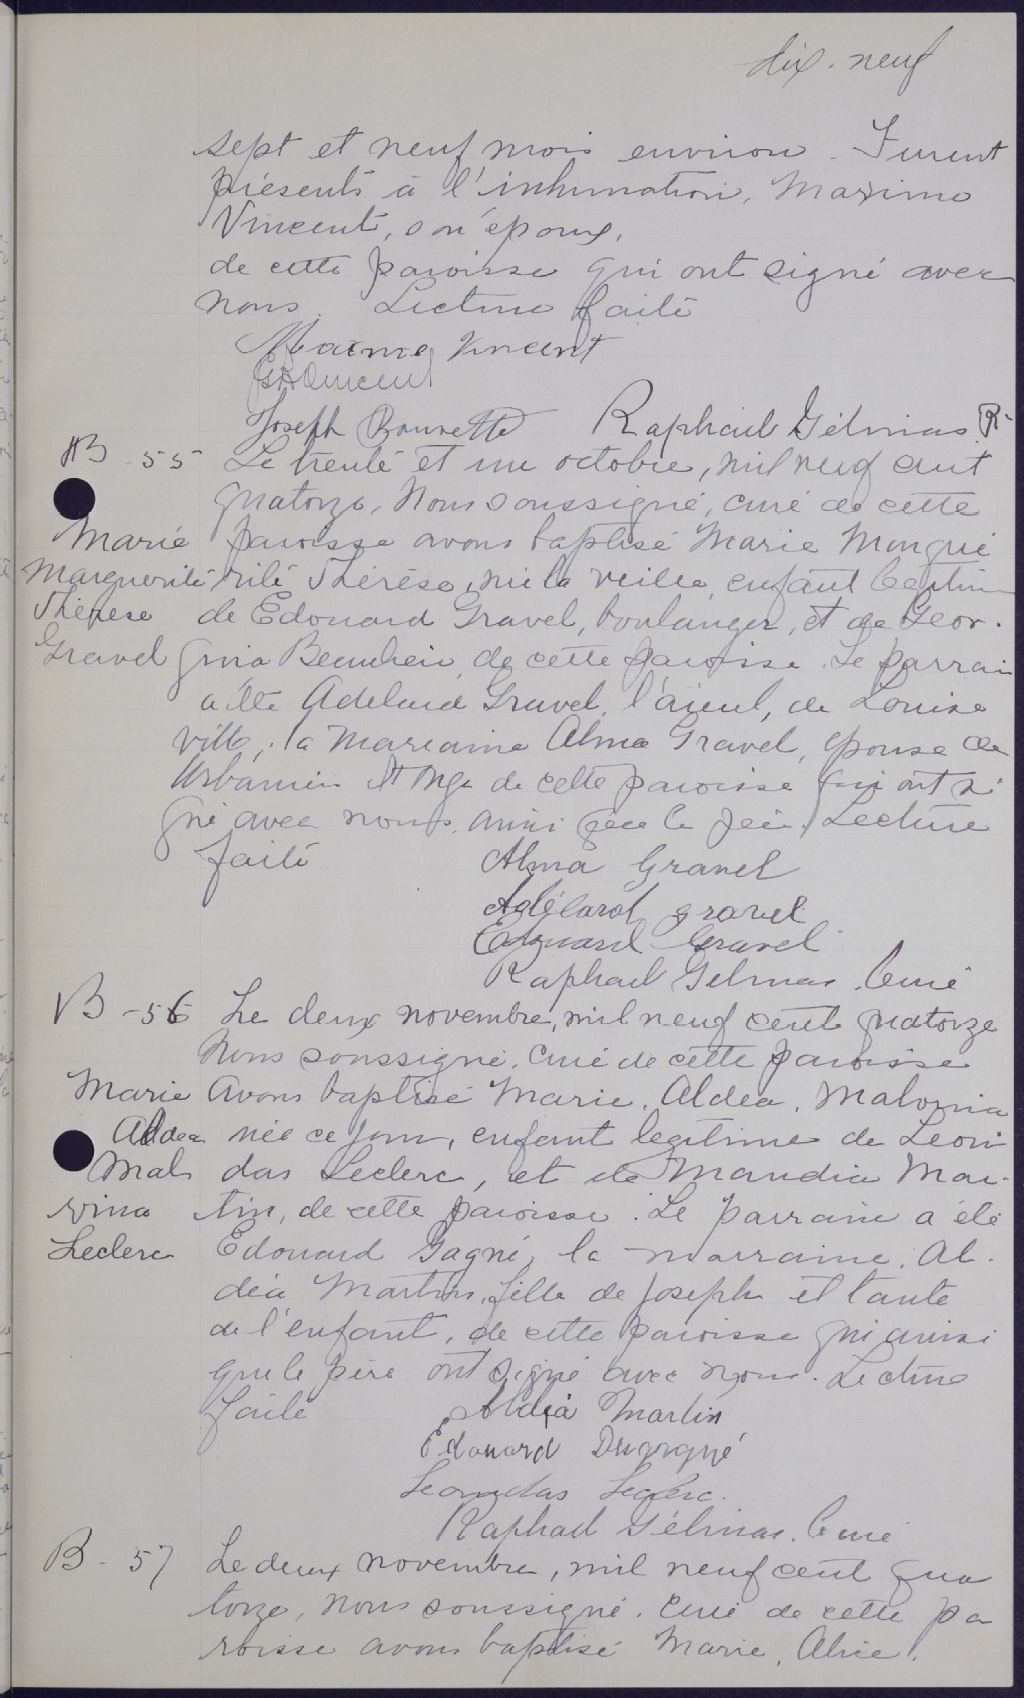 dix-neuf
sept et neuf mois environ. Furent
présents à l'inhumation, Maxime
Vincent, son époux,
de cette paroisse qui ont signé avec
nous. Lecture faite
Maxime Vincent
Vincent
Joseph Raphael Gélinas
B - 55 Le trente et un octobre, mil neuf cent
quatorze, Nous soussigné, curé de cette
Marie paroisse avons baptisé Marie Margue
Marguerite rite Thérèse, née la veille, enfant légitime
Thérèse de Edouard Gravel, boulanger, et de Geor-
Gravel gina de cette paroisse. Le parrain
a été Adelard Gravel, l'aïeul, de Louise
ville, la Marraine Alma Gravel, épouse de
St Onge de cette paroisse qui ont si
gné avec nous, ainsi que le père. Lecture
faite Alma Gravel
Adélard gravel
Edouard Gravel
Raphael Gelinas, Curé
B - 56 Le deux novembre, mil neuf cent quatorze
Nous soussigné, Curé de cette paroisse
Marie Avons baptisé Marie, Aldea, Malvina
Aldea née ce jour, enfant légitime de Leoni
Mal das Leclerc, et de Maudia Mar-
vina tin, de cette paroisse. Le parrain a été
Leclerc Edouard Gagné, la marraine, Al-
déa Martin, fille de Joseph et tante
de l'enfant, de cette paroisse qui ainsi
que le père ont signé avec nous. Lecture
faite Aldéa Martin
Edouard
Leonidas Leclerc.
Raphael Gélinas, Curé
B - 57 Le deux novembre, mil neuf cent qua
torze, Nous soussigné, Curé de cette pa
roisse avons baptisé Marie, Alice,